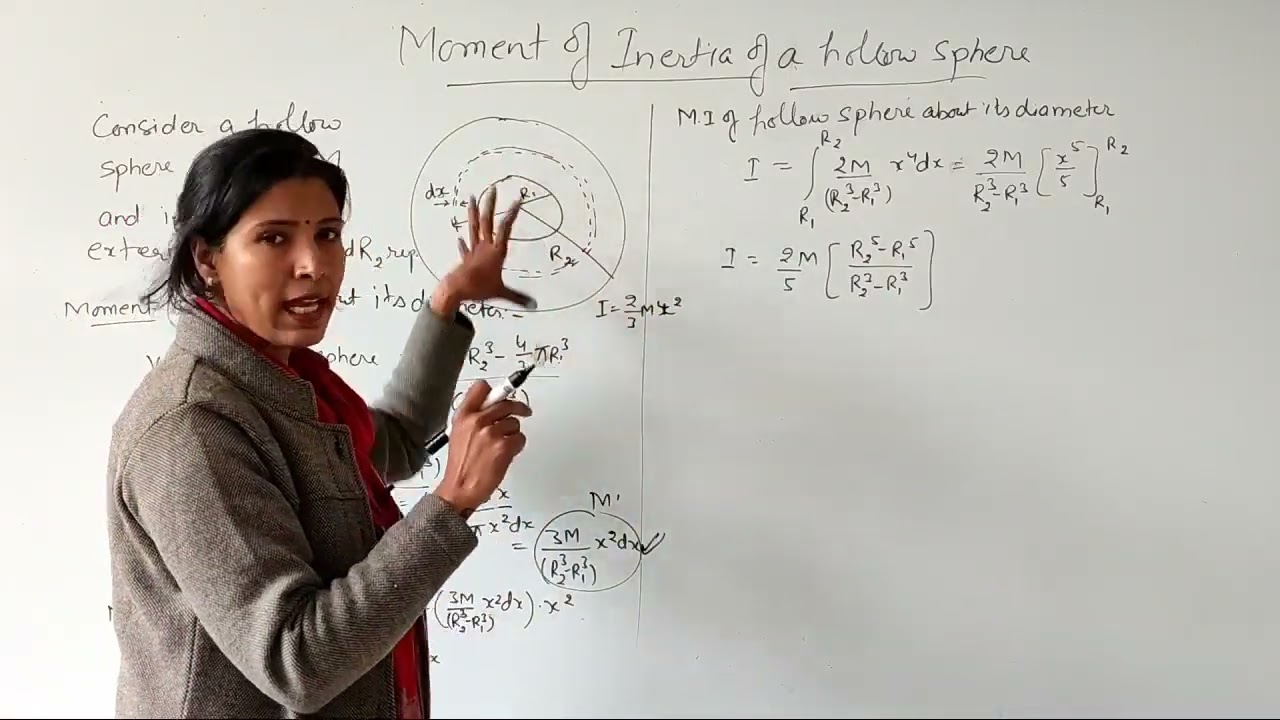 Moment of Inertia of a hollow sphere
Consider a hollow
sphere M
and i
exte dR₂ rep
Moment its diameter:-
sphere R₂³ - 4/3 πR₁³
x
x²dx = 3M/(R₂³-R₁³) x²dx ✓
M'
(3M/(R₂³-R₁³) x²dx) · x²
x
dx
R₁
R₂
I = 2/3 Mr²
M.I of hollow sphere about its diameter
I = ∫R₁R₂ 2M/(R₂³-R₁³) x⁴dx = 2M/R₂³-R₁³ [x⁵/5]R₁R₂
I = 2/5 M [R₂⁵-R₁⁵/R₂³-R₁³]